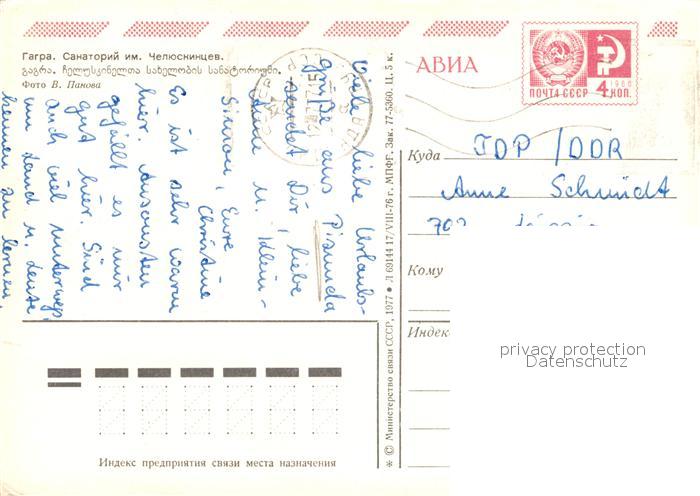 Гагра. Санаторий им. Челюскинцев.
გაგრა. ჩელუსკინელთა სახელობის სანატორიუმი.
Фото В. Панова
АВИА
ПОЧТА СССР
4 КОП.
1966
Viele liebe Urlaubs-
grüße aus Pizunda
sendet Dir, liebe
Anne u. Klein-
Simon, Eure
Christine
Es ist sehr warm
hier. Ansonsten
gefällt es mir
gut hier. Sind
auch viel unterwegs,
um Land u. Leute
kennen zu lernen.
* © Министерство связи СССР, 1977 • Л 69144 17/VIII-76 г. МПФГ. Зак. 77-5360. Ц. 5 к.
Куда
ГДР / DDR
Anne Schmidt
Кому
Индекс
privacy protection
Datenschutz
Индекс предприятия связи места назначения